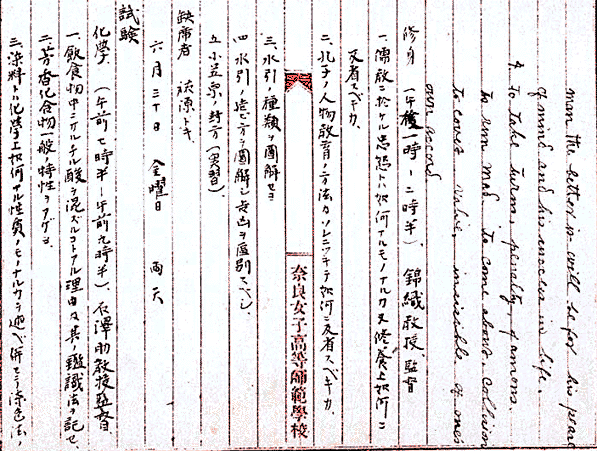 man the better it will be for his peace
of mind and his success in life.
4. To take turns, penalty, famous.
to run mad, to come about, collision
to cover, valve, invisible, of ones
own accord
修身 (午後一時ー二時半)、錦織教授監督
一、儒教ニ於ケル忠恕トハ如何ナルモノナルカ又修養上如何ニ
反省スベキカ
二、孔子ノ人物教育ノ方法カソレニツキテ如何ニ反省スベキカ
奈良女子高等師範學校
三、水引ノ種類ヲ圖解セヨ
四、水引ノ方ヲ圖解シ吉凶ヲ區別スベシ
五、小笠原ノ方(実習)
缺席者 トキ
六月三十日 金曜日 雨天
試験
化學 (午前七時半ー午前九時半)、石澤助教授監督
一、飲食物中ニサルチル酸ヲ混ズルコトアル理由及其ノ鑑識法ヲ記セ
二、芳香化合物一般ノ特性ヲアゲヨ
三、染料トハ化學上如何ナル性質ノモノナルカヲ述ベ併セテ染色法ノ